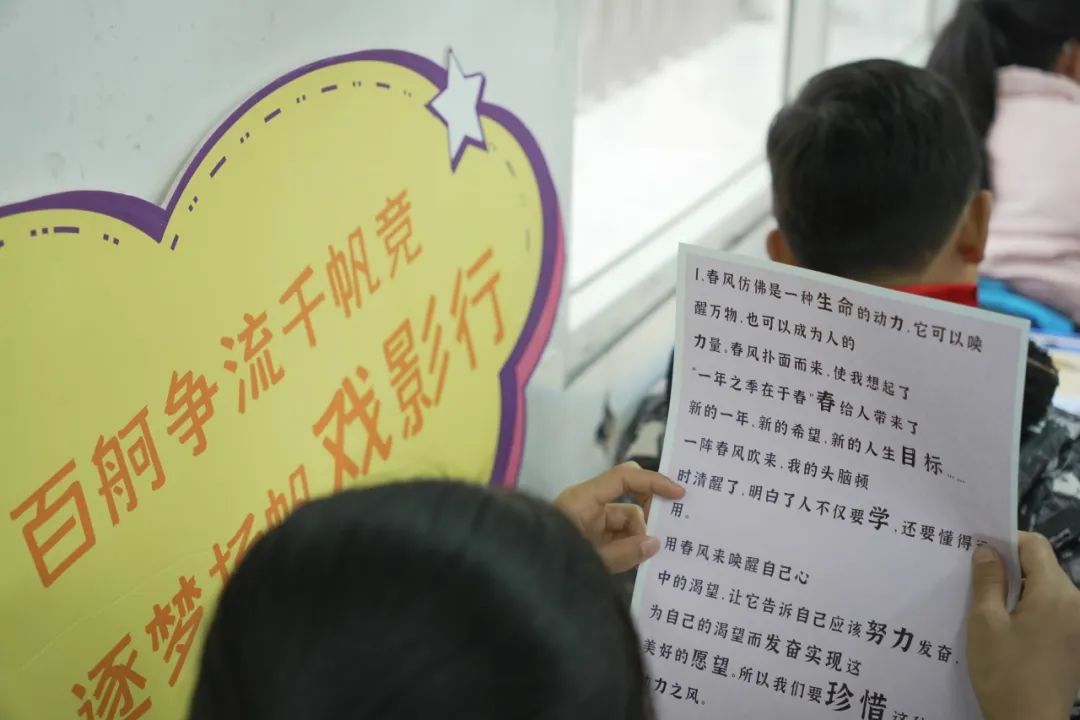 百舸争流千帆竞
逐梦扬帆戏影行
1.春风仿佛是一种生命的动力,它可以唤
醒万物,也可以成为人的
力量。春风扑面而来,使我想起了
"一年之季在于春"春给人带来了
新的一年,新的希望,新的人生目标……
一阵春风吹来,我的头脑顿
时清醒了,明白了人不仅要学,还要懂得
用。
用春风来唤醒自己心
中的渴望,让它告诉自己应该努力发奋,
为自己的渴望而发奋实现这
美好的愿望。所以我们要珍惜
力之风。